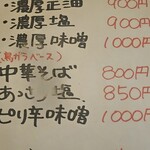 ・濃厚正油 900円
・濃厚塩 900円
・濃厚味噌 1000円
(鶏ガラベース)
中華そば 800円
あっさり塩 850円
ピリ辛味噌 1000円